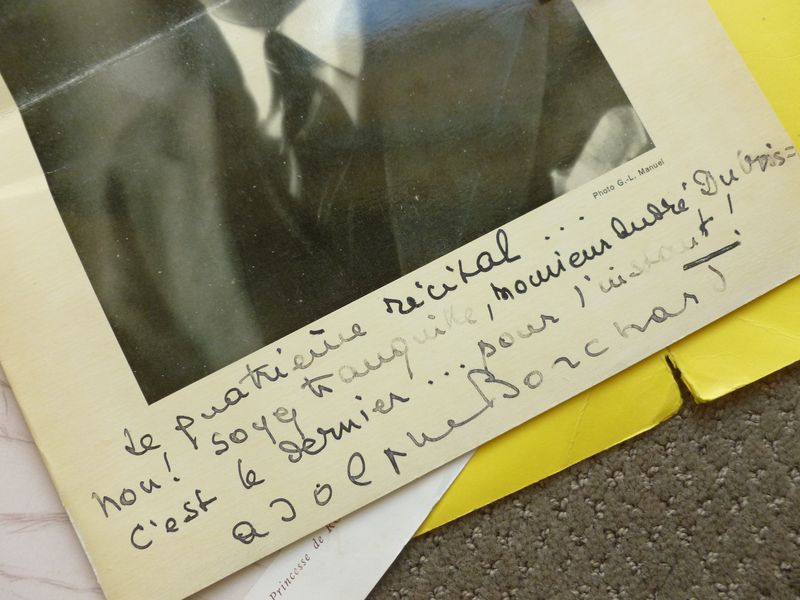 Photo G.-L. Manuel
Le quatrième récital ...
non! soyez tranquille, monsieur André Dubois=
c'est le dernier ... pour l'instant!
adolphe Borchard
Princesse de